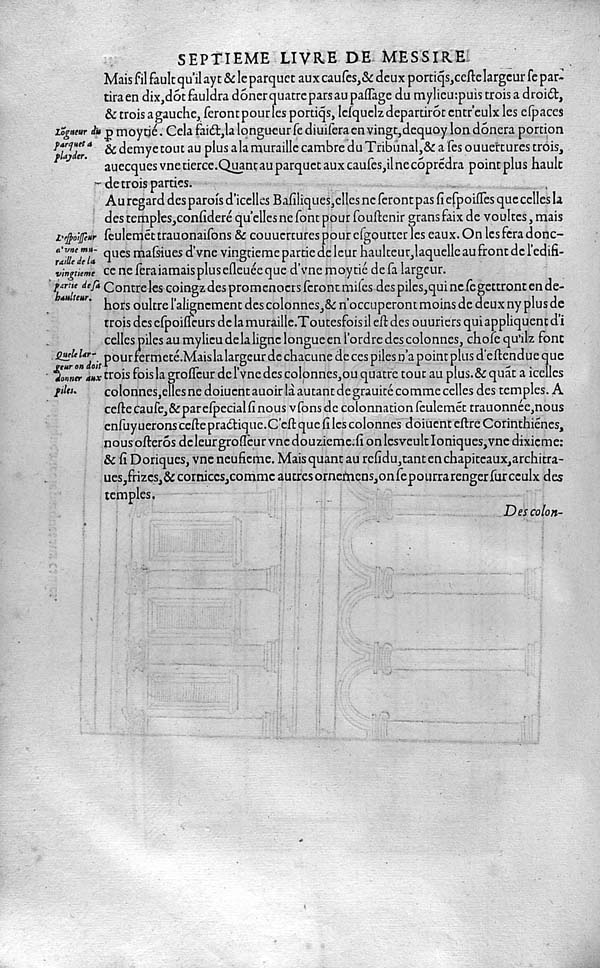 SEPTIEME LIVRE DE MESSIRE
Mais ſil fault qu'il ayt & le parquet aux cauſes, & deux portiq̃s, ceſte largeur ſe par-
tira en dix, dõt fauldra dõner quatre pars au paſſage du mylieu: puis trois a droict,
& trois a gauche, ſeront pour les portiq̃s, leſquelz departirõt entr'eulx les eſpaces
Lõgueur du
parquet a
playder.
ꝑ moytié. Cela faict, la longueur ſe diuiſera en vingt, dequoy lon dõnera portion
& demye tout au plus a la muraille cambre du Tribunal, & a ſes ouuertures trois,
auecques vne tierce. Quant au parquet aux cauſes, il ne cõprẽdra point plus hault
de trois parties.
Au regard des parois d'icelles Baſiliques, elles ne ſeront pas ſi eſpoiſſes que celles la
des temples, conſideré qu'elles ne ſont pour ſouſtenir grans faix de voultes, mais
L'eſpoiſſeur
d'vne mu-
raille de la
vingtieme
partie de ſa
haulteur.
ſeulemẽt trauonaiſons & couuertures pour eſgoutter les eaux. On les fera donc-
ques maſsiues d'vne vingtieme partie de leur haulteur, laquelle au front de l'edifi-
ce ne ſera iamais plus eſleuée que d'vne moytié de ſa largeur.
Contre les coingz des promenoers ſeront miſes des piles, qui ne ſe gettront en de-
hors oultre l'alignement des colonnes, & n'occuperont moins de deux ny plus de
trois des eſpoiſſeurs de la muraille. Toutesfois il eſt des ouuriers qui appliquent d'i
celles piles au mylieu de la ligne longue en l'ordre des colonnes, choſe qu'ilz font
Quele lar-
geur on doit
donner aux
piles.
pour fermeté. Mais la largeur de chacune de ces piles n'a point plus d'eſtendue que
trois fois la groſſeur de l'vne des colonnes, ou quatre tout au plus. & quãt a icelles
colonnes, elles ne doiuent auoir là autant de grauité comme celles des temples. A
ceſte cauſe, & par eſpecial ſi nous vſons de colonnation ſeulemẽt trauonnée, nous
enſuyuerons ceſte practique. C'eſt que ſi les colonnes doiuent eſtre Corinthiẽnes,
nous oſterõs de leur groſſeur vne douzieme: ſi on les veult Ioniques, vne dixieme:
& ſi Doriques, vne neufieme. Mais quant au reſidu, tant en chapiteaux, architra-
ues, frizes, & cornices, comme autres ornemens, on ſe pourra renger ſur ceulx des
temples.
Des colon-